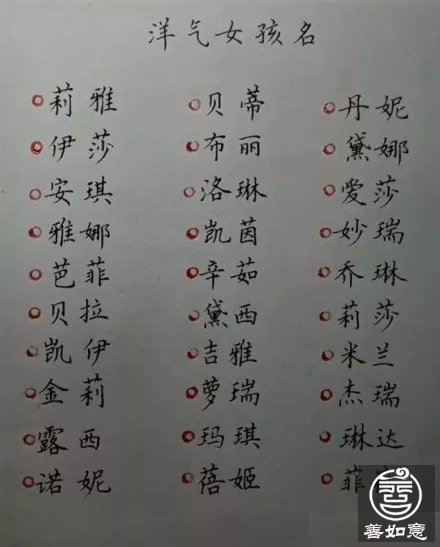 洋气女孩名
莉雅 贝蒂 丹妮
伊莎 布丽 黛娜
安琪 洛琳 爱莎
雅娜 凯茵 妙瑞
芭菲 辛茹 乔琳
贝拉 黛西 莉莎
凯伊 吉雅 米兰
金莉 萝瑞 杰瑞
露西 玛琪 琳达
诺妮 蓓姬 菲
善如意